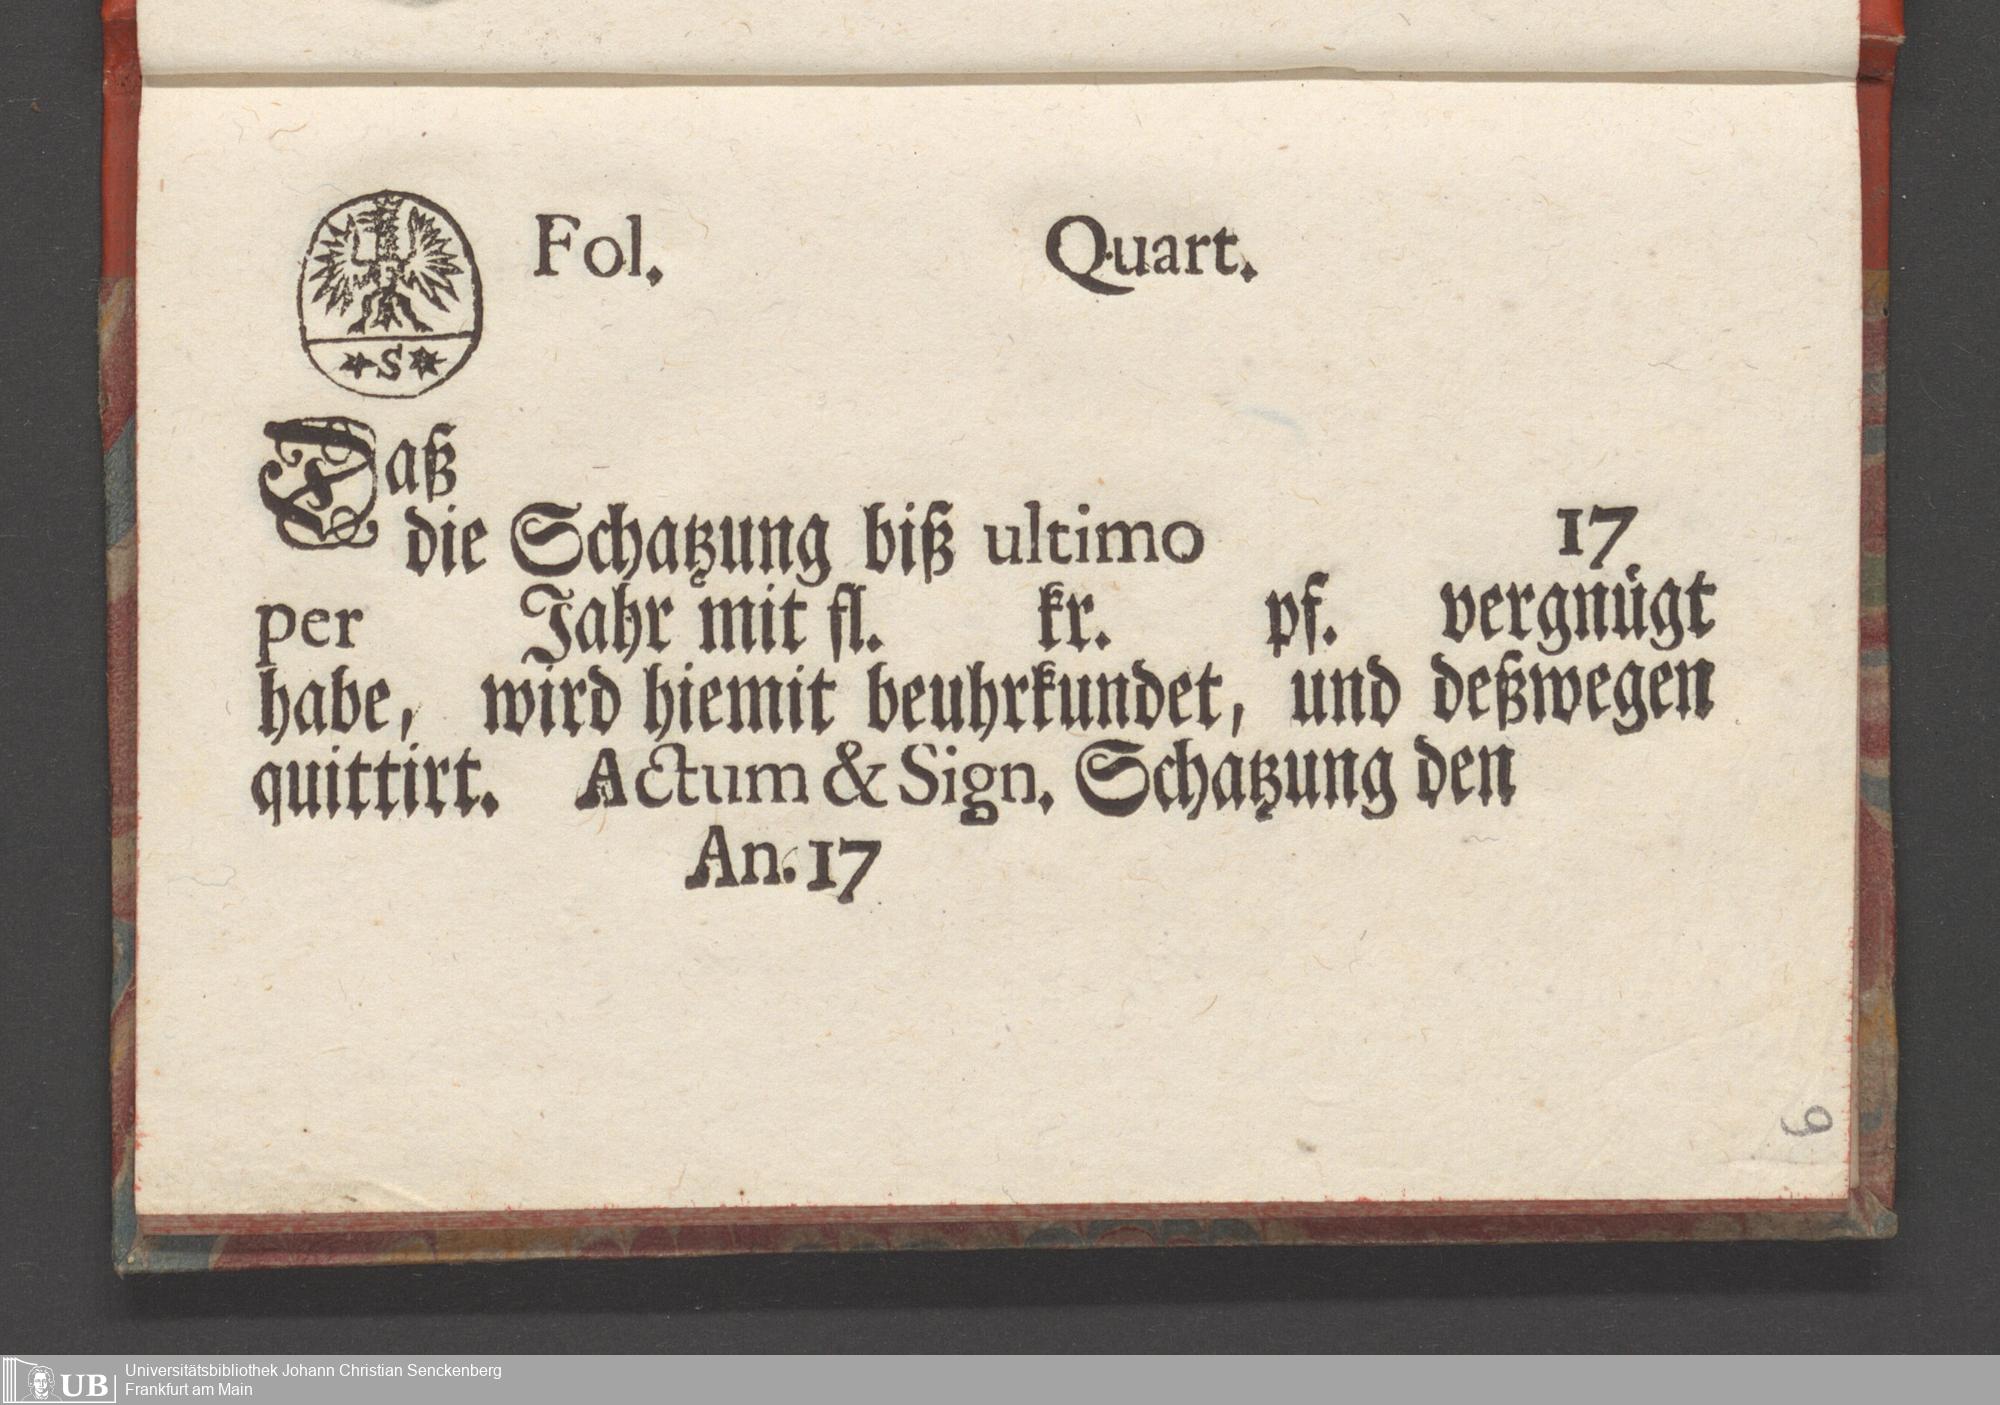 S
Fol. Quart.
Daß
die Schatzung biß ultimo 17
per Jahr mit fl. kr. pf. vergnügt
habe, wird hiemit beuhrkundet, und deßwegen
quittirt. Actum & Sign. Schatzung den
An. 17
9
UB Universitätsbibliothek Johann Christian Senckenberg
Frankfurt am Main